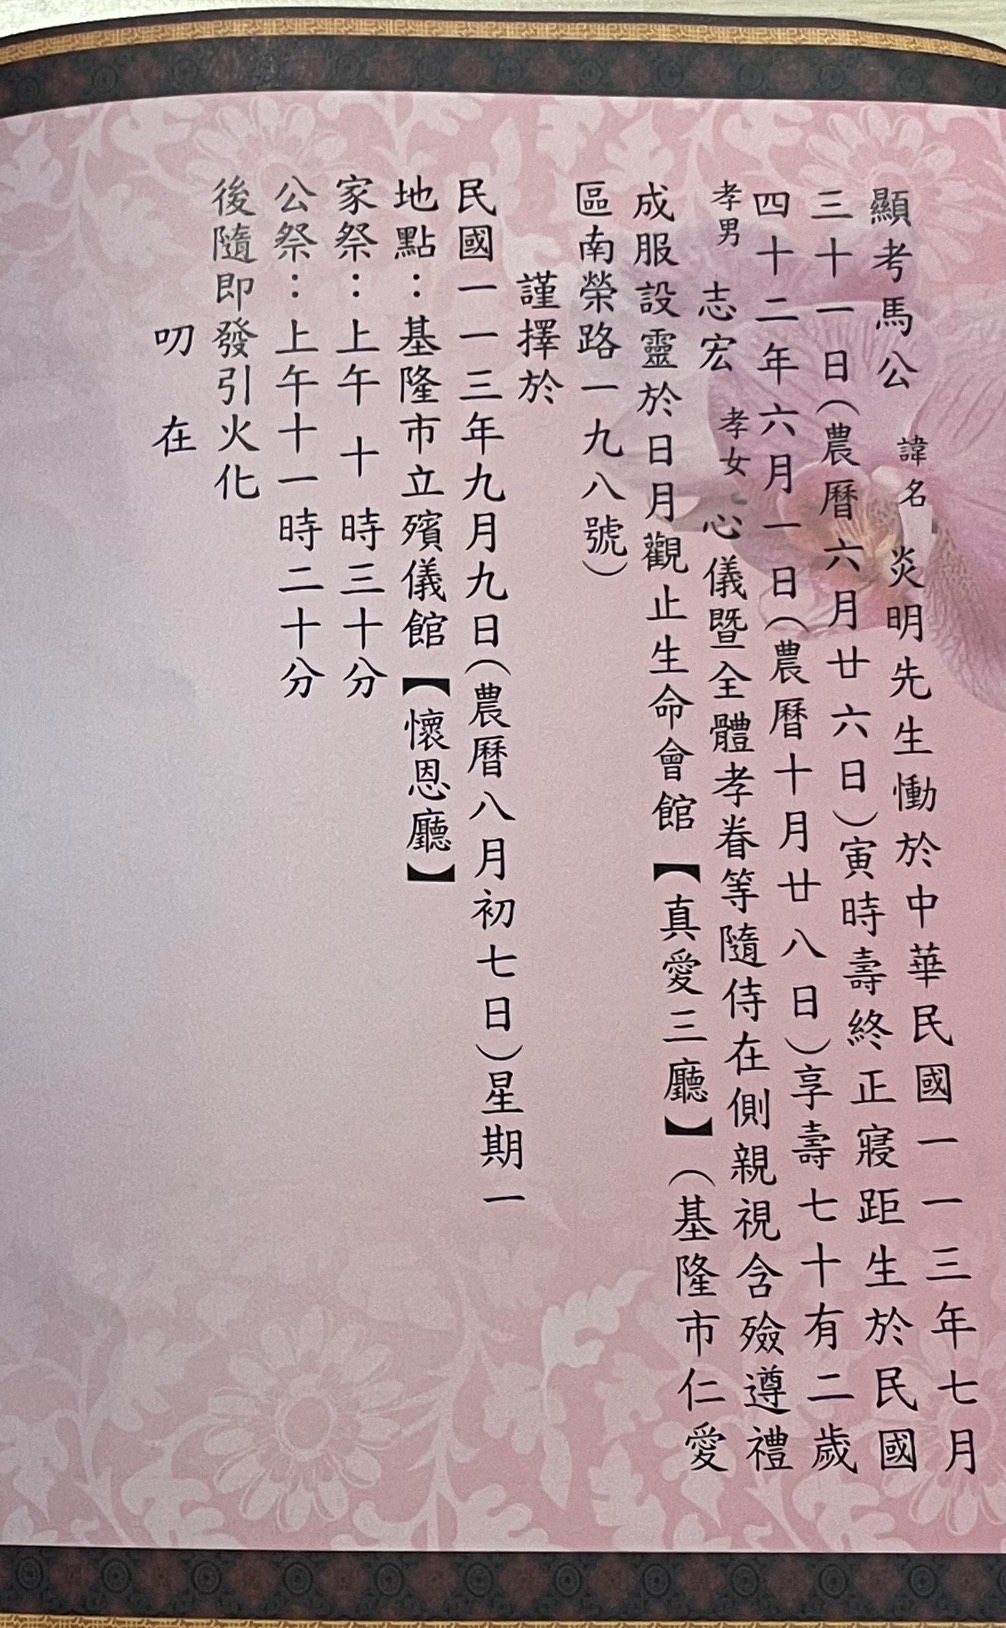 顯考馬公 諱名 炎明先生慟於中華民國一一三年七月
三十一日(農曆六月廿六日)寅時壽終正寢距生於民國
四十二年六月一日(農曆十月廿八日)享壽七十有二歲
孝男 志宏 孝女 心儀暨全體孝眷等隨侍在側親視含殮遵禮
成服設靈於日月觀止生命會館【真愛三廳】(基隆市仁愛
區南榮路一九八號)
謹擇於
民國一一三年九月九日(農曆八月初七日)星期一
地點：基隆市立殯儀館【懷恩廳】
家祭：上午 十 時三十分
公祭：上午十一時二十分
後隨即發引火化
叨 在